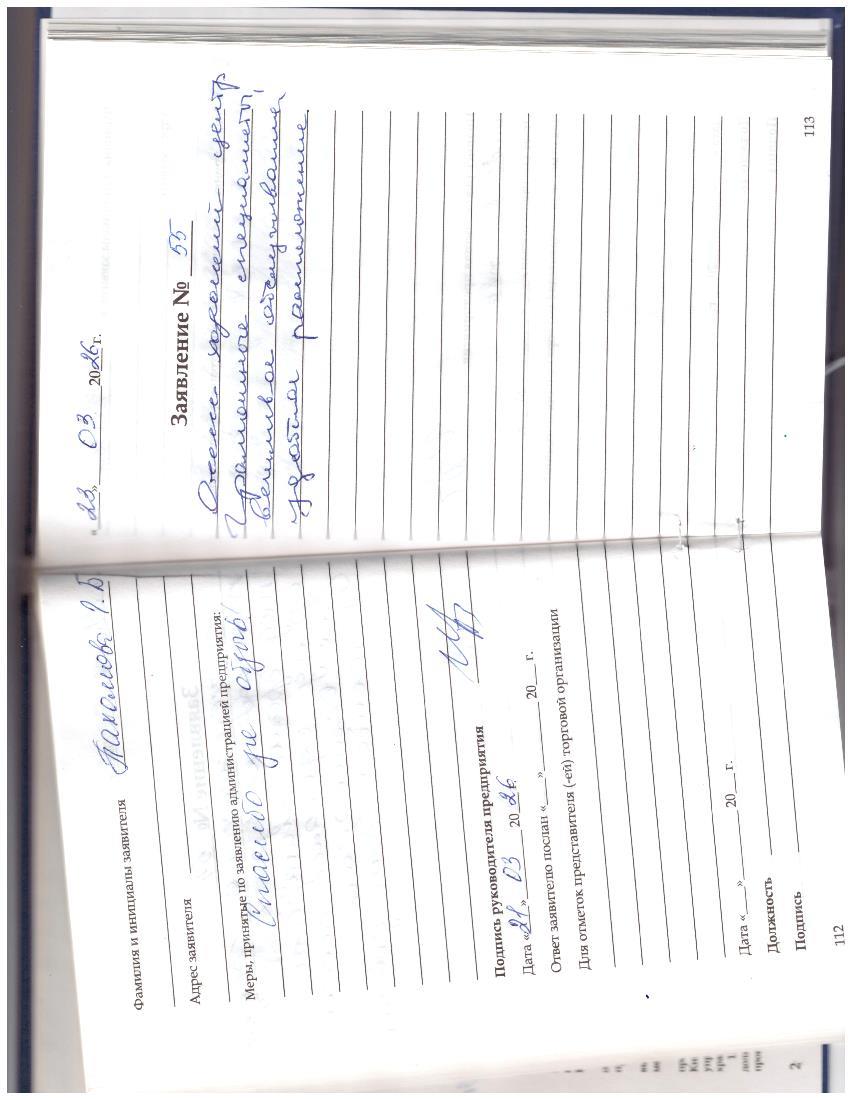 Фамилия и инициалы заявителя Пахомова Г.Б
Адрес заявителя
Меры, принятые по заявлению администрацией предприятия:
Спасибо
Подпись руководителя предприятия
Дата «21» 03 2026
Ответ заявителю послан «___»________ 20___ г.
Для отметок представителя (-ей) торговой организации
Дата «___»________ 20___ г.
Должность
Подпись
112
«23» 03 2026 г.
Заявление № 55
Очень хороший центр
Грамотные специалисты,
вежливое обслуживание
удобное расположение
113
2